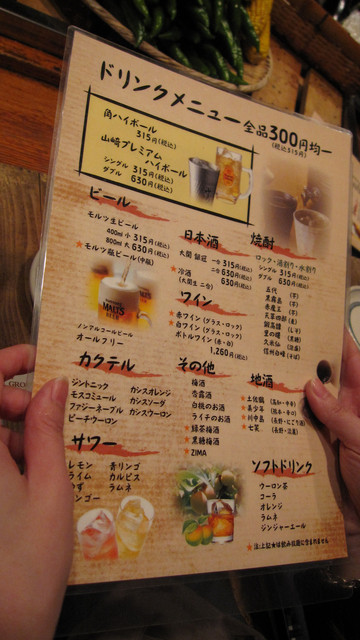 ドリンクメニュー 全品300円均一
(税込315円)
角ハイボール
315円(税込)
山崎プレミアム
ハイボール
シングル 315円(税込)
ダブル 630円(税込)
ビール
モルツ生ビール
400ml 中 315円(税込)
800ml 大 630円(税込)
★モルツ瓶ビール(中瓶)
MALT'S
ノンアルコールビール
オールフリー
日本酒
大関 銀冠 一合 315円(税込)
二合 630円(税込)
★冷酒 630円(税込)
(大関生 二合)
焼酎
ロック・湯割り・水割り
シングル 315円(税込)
ダブル 630円(税込)
五代 (芋)
黒霧島 (芋)
赤霧島 (芋)
天草四郎 (麦)
鍛高譚 (しそ)
里の曙 (黒糖)
久米仙 (泡盛)
信州白峰 (そば)
ワイン
★赤ワイン (グラス・ロック)
★白ワイン (グラス・ロック)
★ボトルワイン (赤・白)
1,260円(税込)
カクテル
ジントニック カシスオレンジ
モスコミュール カシスソーダ
ファジーネーブル カシスウーロン
ピーチウーロン
その他
梅酒
杏露酒
白桃のお酒
ライチのお酒
★緑茶梅酒
★黒糖梅酒
★ZIMA
地酒
★土佐鶴 (高知・辛口)
★美少年 (熊本・辛口)
★川中島 (長野・にごり酒)
★七笑 (長野・淡麗)
サワー
レモン 青リンゴ
ライム カルピス
ゆず ラムネ
マンゴー
ソフトドリンク
ウーロン茶
コーラ
オレンジ
ラムネ
ジンジャーエール
★注:上記★は飲み放題に含まれません